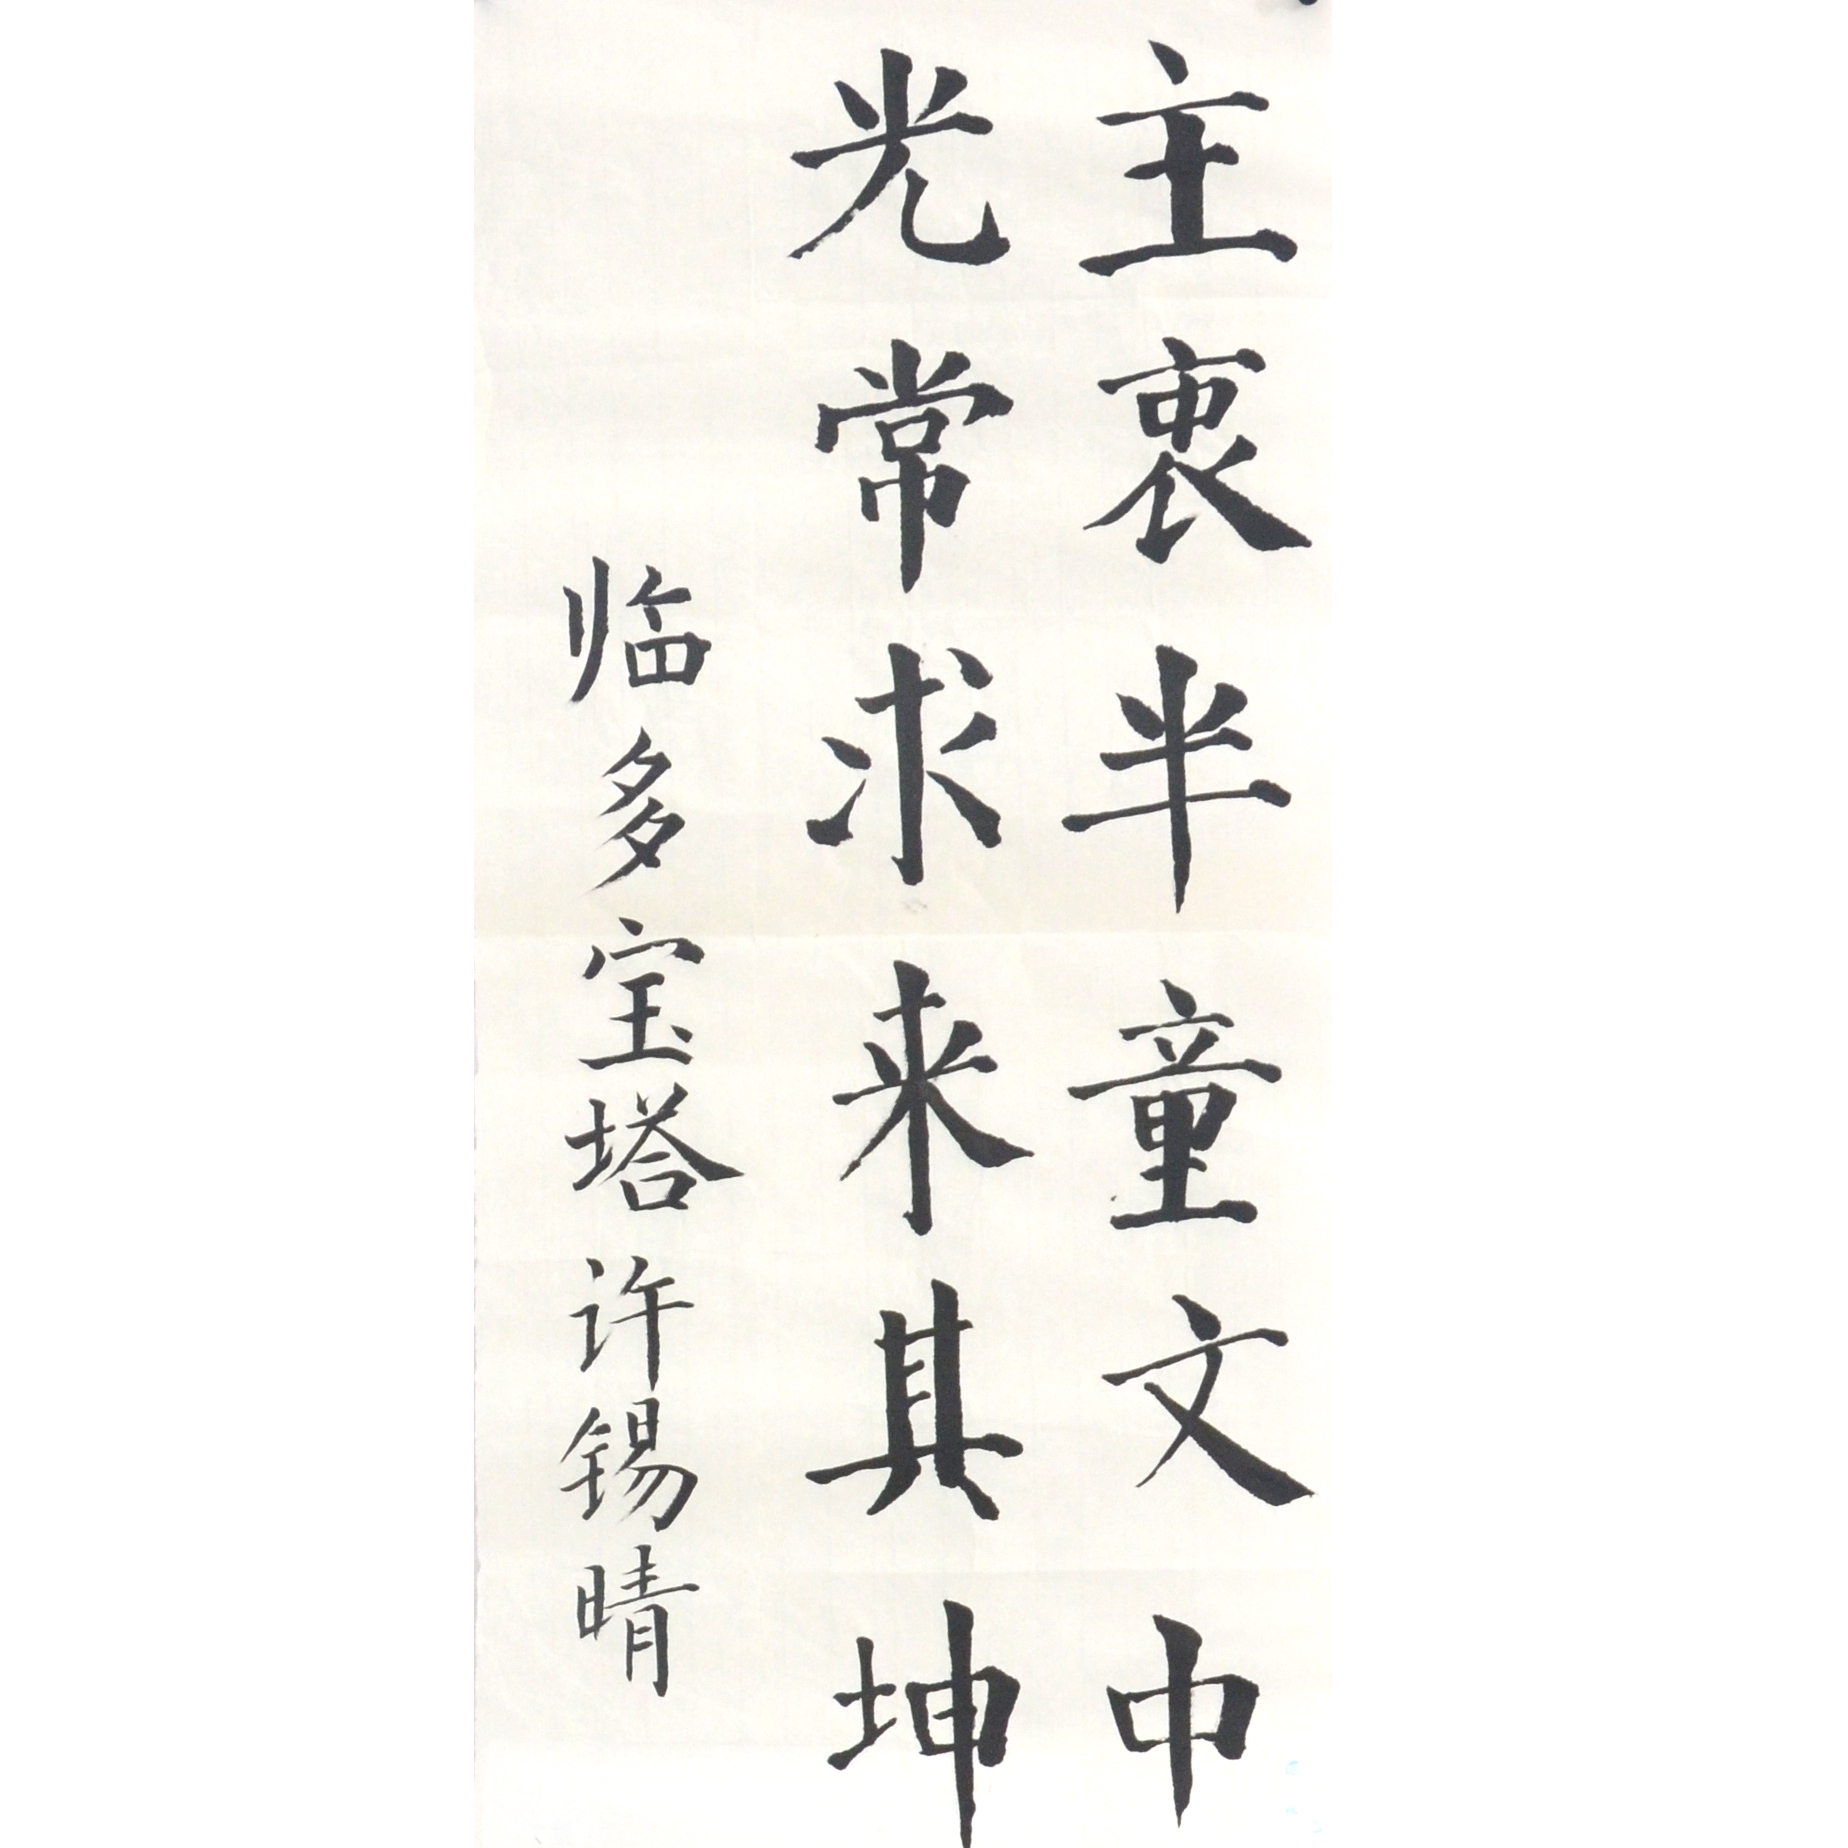 主衷半童文中
光常求来其坤
临多宝塔许锡晴